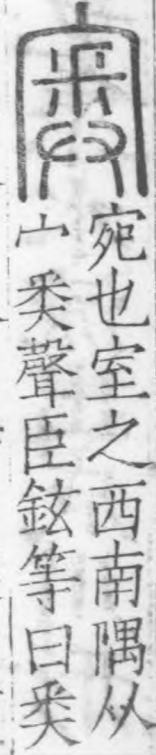 𡪿
宛也室之西南隅从
宀𢍏聲臣鉉等曰𢍏